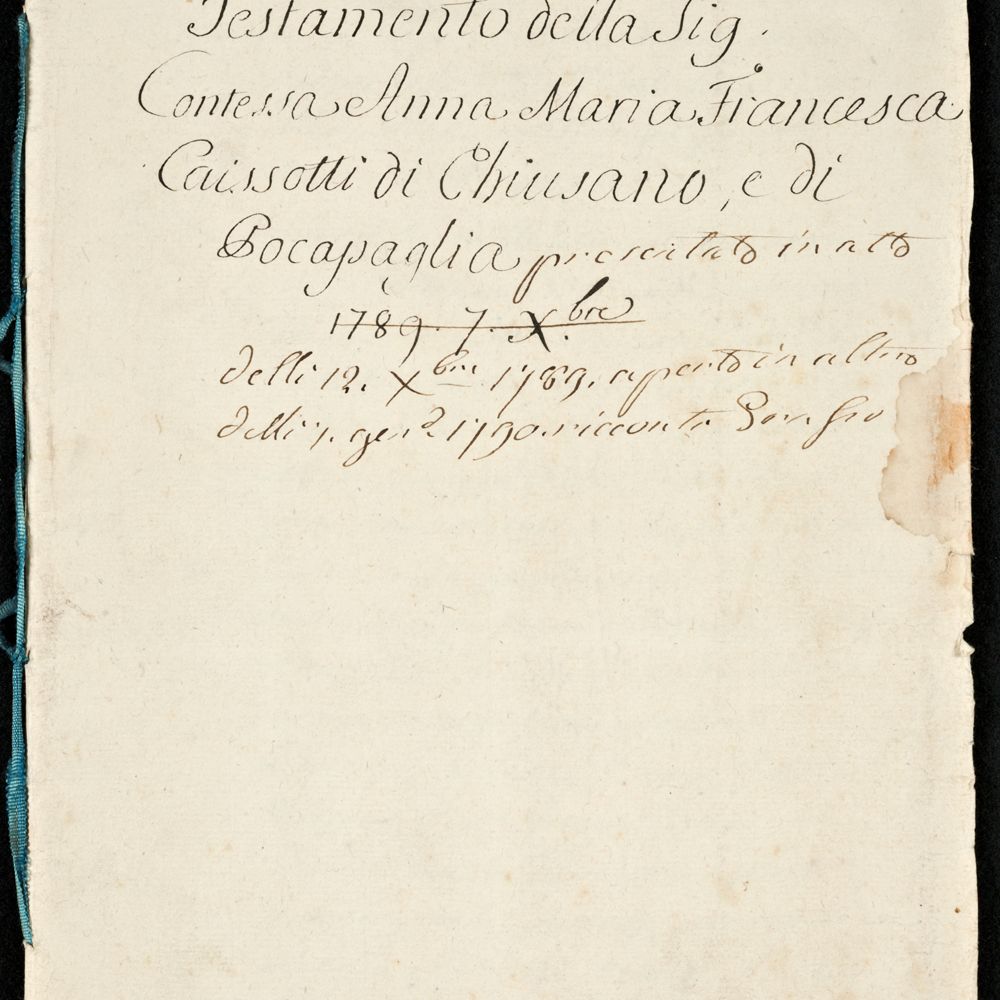 Testamento della Sig.
Contessa Anna Maria Francesca
Caissotti di Chiusano, e di
Pocapaglia presentato in atto
1789. 7. Xbre
delli 12. Xbre 1789. aperto in altro
delli 7. genº 1790.